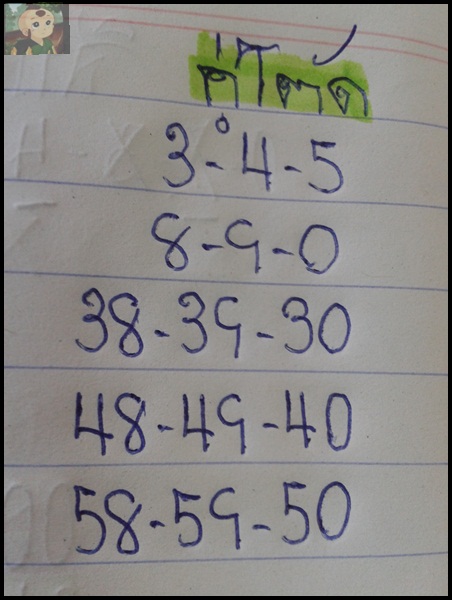 คู่โต๊ด
3-4-5
8-9-0
38-39-30
48-49-40
58-59-50